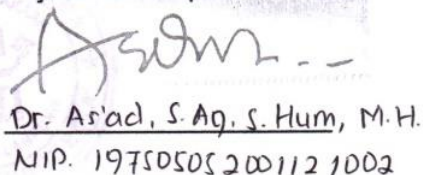 Dr. As'ad, S.Ag, S.Hum, M.H.
NIP. 19750505 200112 1002